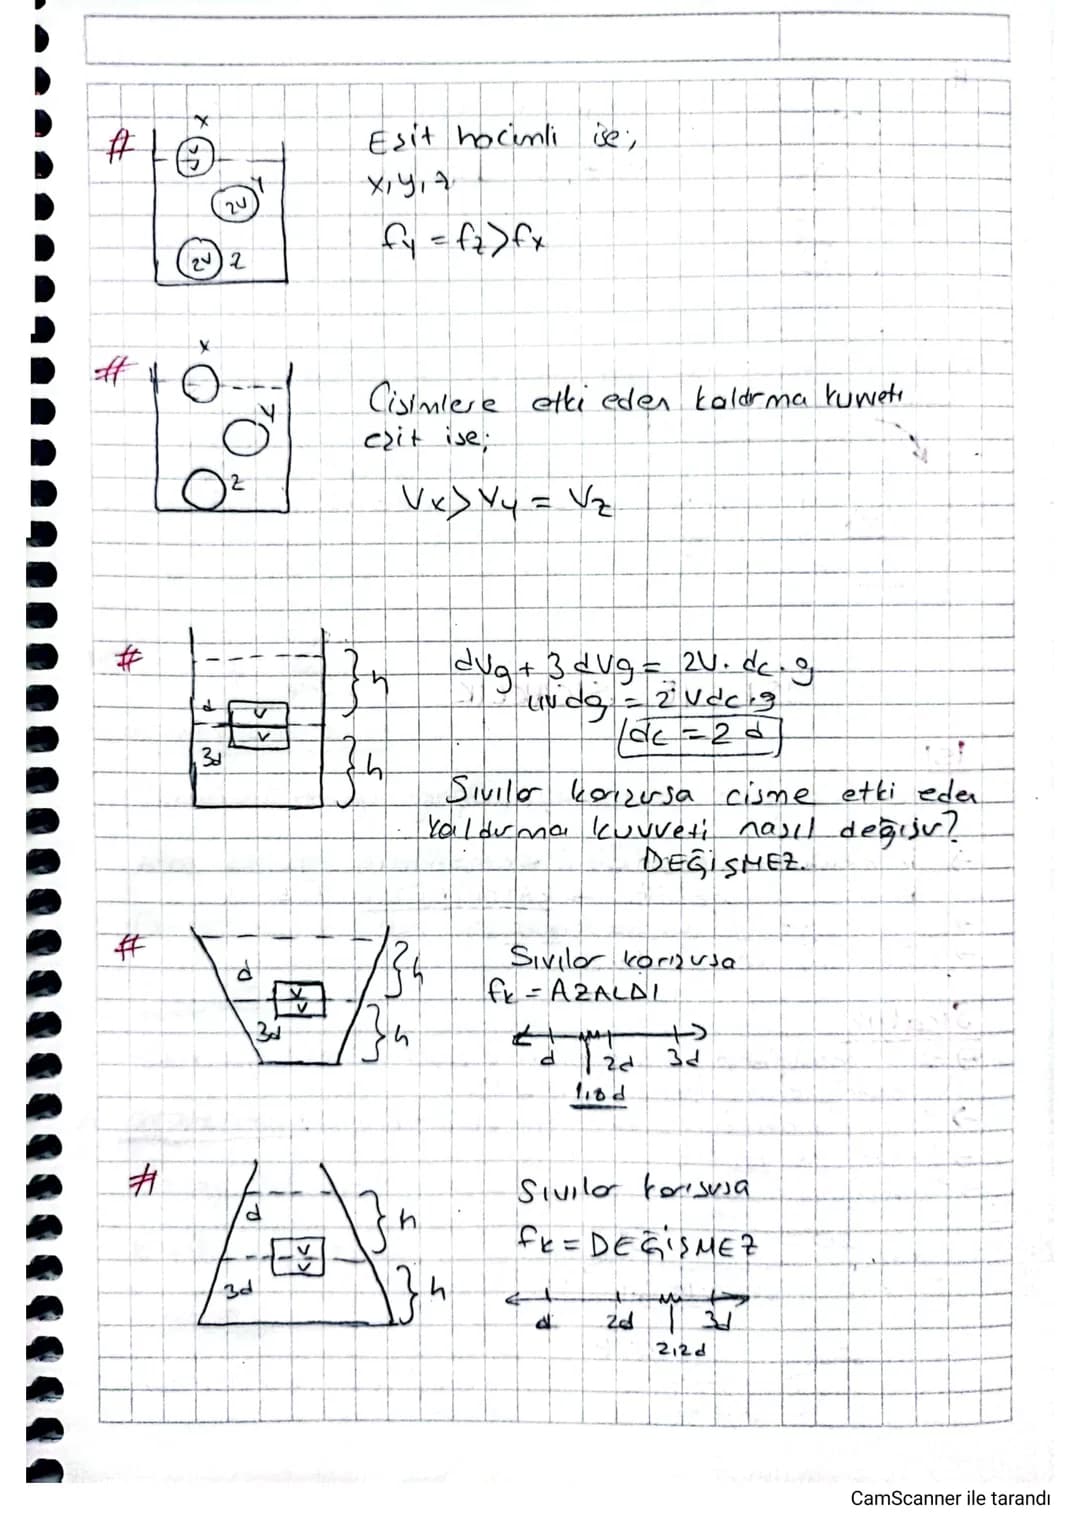 # x
V
V
y
2V
2V z
Eşit hacimli ise;
x, y, z
fy = fz > fx
# x
y
z
Cisimlere etki eden kaldırma kuvveti
eşit ise;
Vx > Vy = Vz
#
d V
3d V
h
h
dVg + 3dVg = 2V. dc. g
4Vdg = 2Vdc.g
dc = 2d
Sıvılar karışırsa cisme etki eden
kaldırma kuvveti nasıl değişir?
DEĞİŞMEZ.
#
d V
3d V
h
h
Sıvılar karışırsa
fk = AZALDI
d 2d 3d
1,8d
#
d V
3d V
h
h
Sıvılar karışırsa
fk = DEĞİŞMEZ
d 2d 3d
2,2d
CamScanner ile tarandı